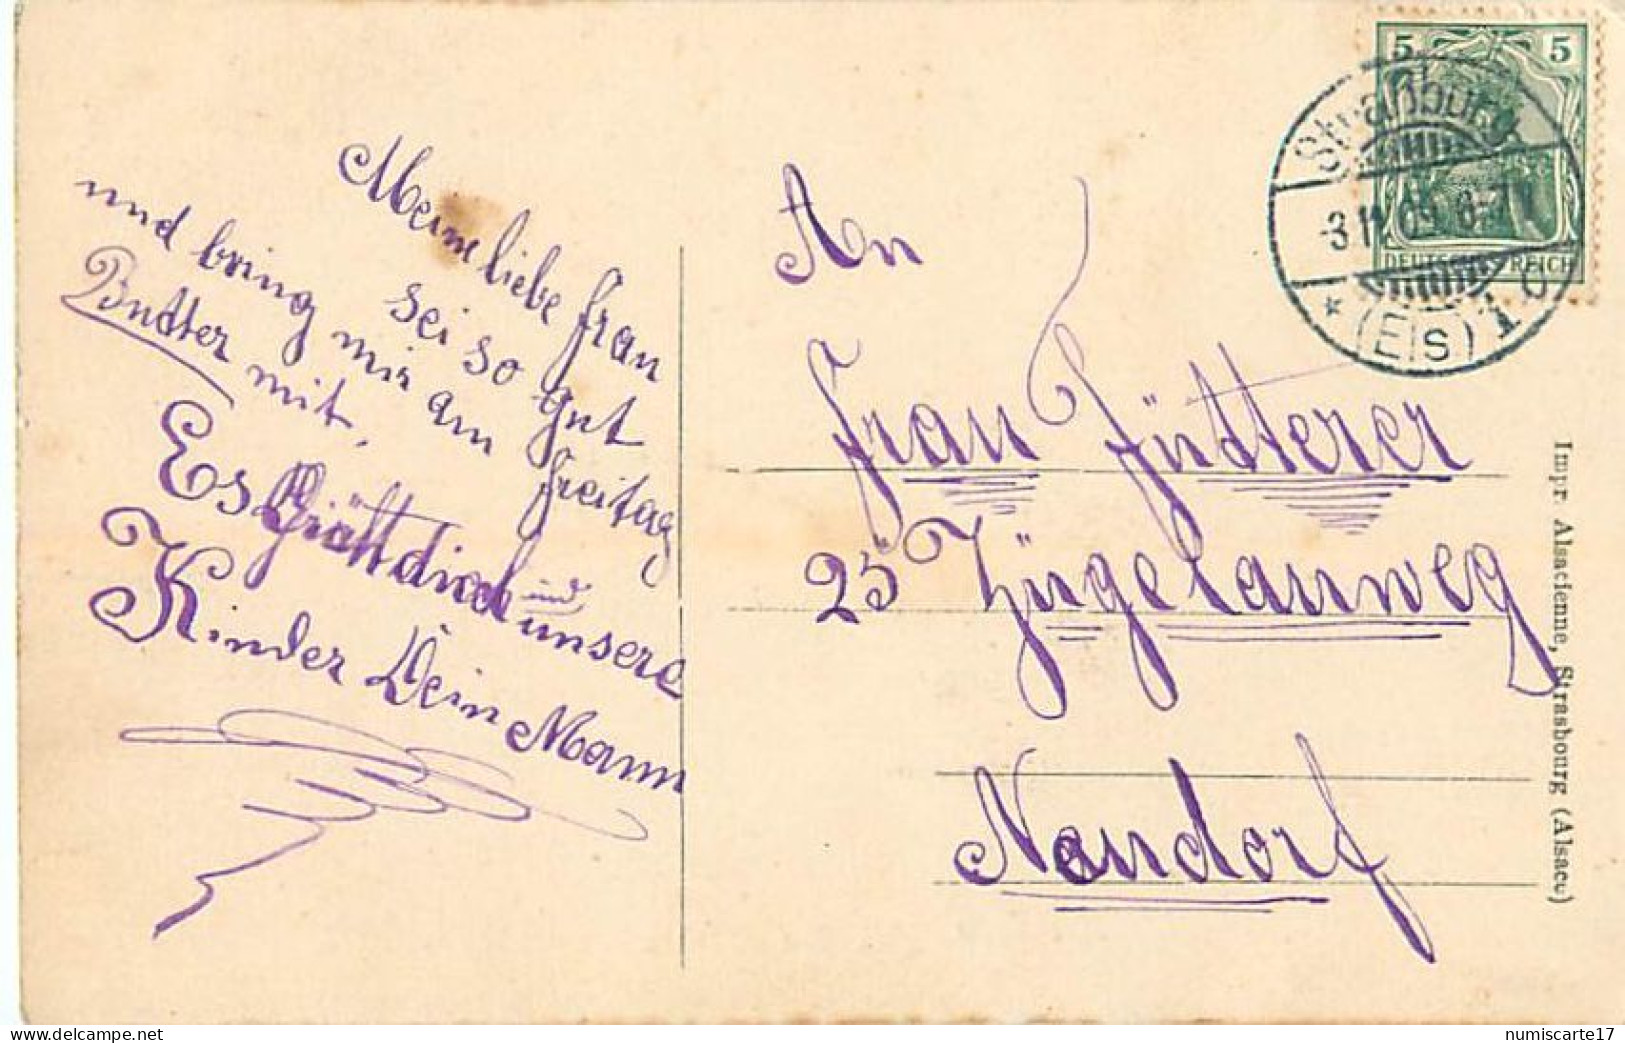 Meine liebe Frau
sei so gut
und bring mir am Freitag
Budter mit.
Es Grüßt dich und
unsere
Kinder Dein Mann
An
Frau Füdterer
25 Zügelauweg
Neudorf
5 5
Straßburg
3.11.09. 6-7N
DEUTSCHES REICH
* (Els) 1 U
Impr. Alsacienne, Strasbourg (Alsace)
delcampe.net
numiscarte17